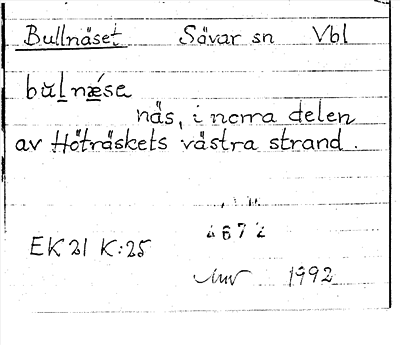 Bullnäset Sävar sn Vbl
bŭlnǽse
näs, i norra delen
av Höträskets västra strand.
EK 21 K:25
1992